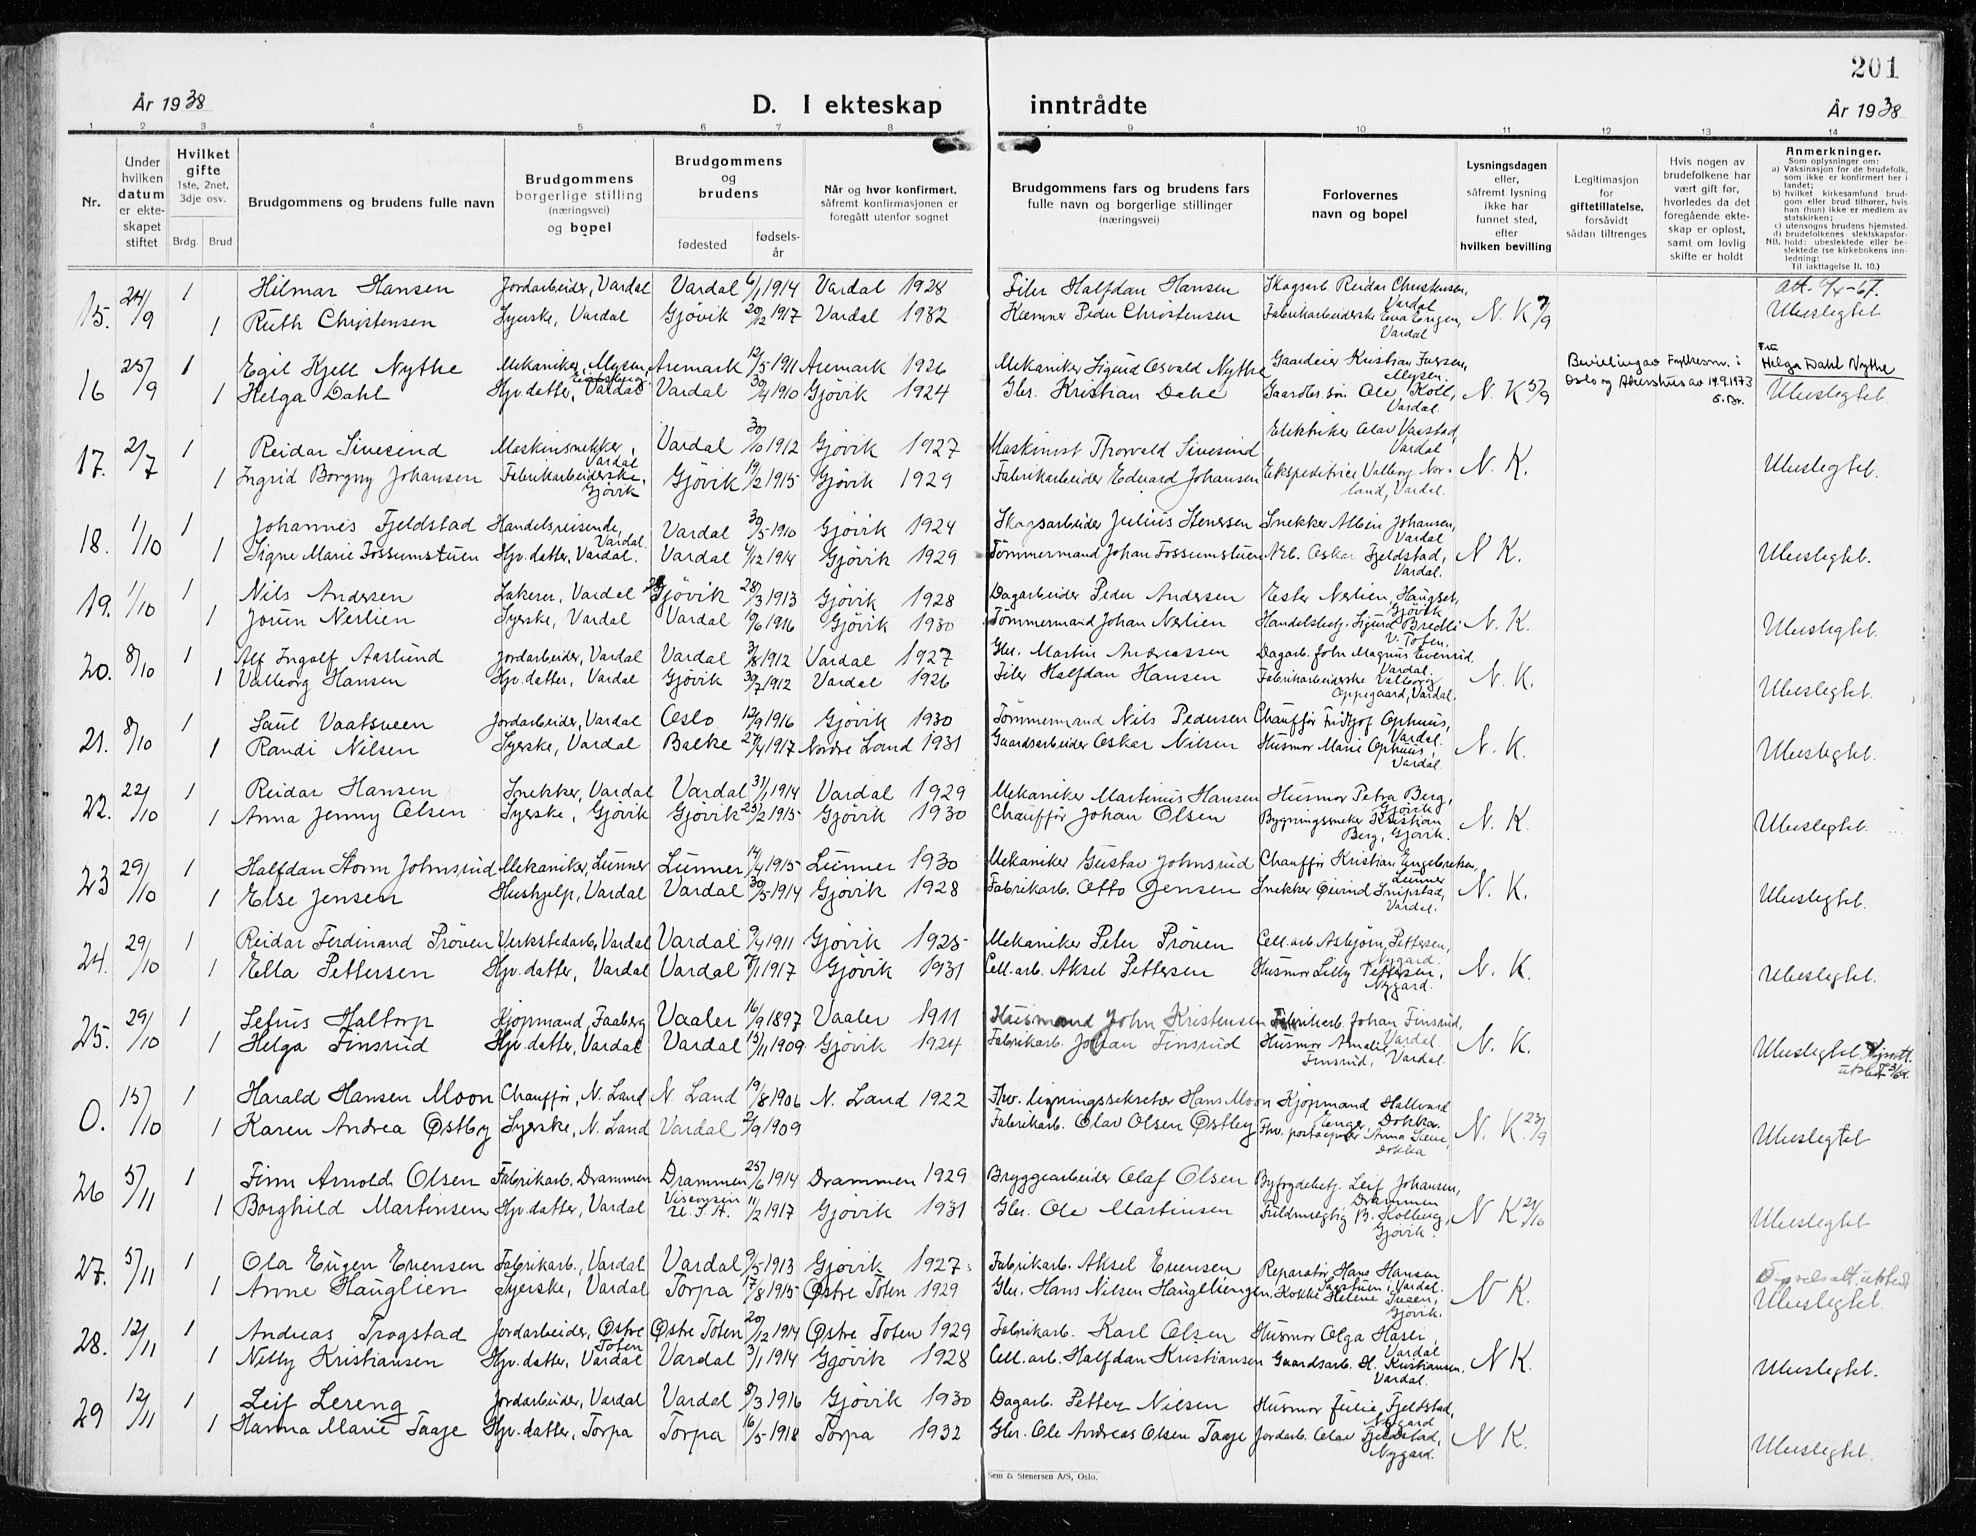 201
År 1938
D. I ekteskap inntrådte
År 1938
1 2 3 4 5 6 7 8 9 10 11 12 13 14
Nr.
Under hvilken datum er ekteskapet stiftet
Hvilket gifte 1ste, 2net, 3dje osv.
Brdg. Brud
Brudgommens og brudens fulle navn
Brudgommens borgerlige stilling (næringsvei) og bopel
Brudgommens og brudens
fødested
fødselsår
Når og hvor konfirmert, såfremt konfirmasjonen er foregått utenfor sognet
Brudgommens fars og brudens fars fulle navn og borgerlige stillinger (næringsvei)
Forlovernes navn og bopel
Lysningsdagen eller, såfremt lysning ikke har funnet sted, efter hvilken bevilling
Legitimasjon for giftetillatelse, forsåvidt sådan tiltrenges
Hvis nogen av brudefolkene har vært gift før, hvorledes da det foregående ekteskap er opløst, samt om lovlig skifte er holdt
Anmerkninger.
Som oplysninger om:
a) Vaksinasjon for de brudefolk, som ikke er konfirmert her i landet;
b) hvilket kirkesamfund brudgom eller brud tilhører, hvis han (hun) ikke er medlem av statskirken;
c) utensogns brudens hjemsted.
d) brudefolkenes slektskapsforhold: ubeslektede eller beslektede (se kirkebokens innledning:
NB. Til iakttagelse II. 10.)
15. 24/9 1 Hilmar Hansen Jordarbeider, Vardal Vardal 6/1 1914 Vardal 1928 Filer Halfdan Hansen Skogsarb Reidar Christensen, Vardal
1 Ruth Christensen Syerske, Vardal Gjøvik 20/12 1917 Vardal 1932 Kremner Peder Christensen Fabrikarbeiderske Eva Engen, Vardal N. K 7/9 Ubeslegtet
16 25/9 1 Egil Kjell Nythe Mekaniker, Mysen, Eidsberg Aremark 12/5 1911 Aremark 1926 Mekaniker Sigurd Osvald Nythe Gaardeier Kristian Iversen, Mysen
1 Helga Dahl Hjv. datter, Vardal Vardal 30/4 1910 Gjøvik 1924 Gbr. Kristian Dahl Gaardbr. søn Ole Koll, Vardal. N. K 5/9 Bevilling av Fylkesm. i Oslo og Akershus av 14.9.1973 Fru Helga Dahl Nythe Ubeslegtet
17. 2/7 1 Reidar Sivesind Maskinsnekker, Vardal Vardal 30/10 1912 Gjøvik 1927 Maskinist Thorvald Sivesind Elektriker Olav Varstad, Vardal
1 Ingrid Borgny Johansen Fabrikarbeiderske, Gjøvik Gjøvik 19/2 1915 Gjøvik 1929 Fabrikarbeider Edvard Johansen Ekspeditrice Valborg Norland, Vardal. N. K. Ubeslegtet.
18. 1/10 1 Johannes Fjeldstad Handelsreisende, Vardal Vardal 30/5 1910 Gjøvik 1924 Skogsarbeider Julius Stenersen Snekker Albin Johansen, Vardal
1 Signe Marie Fossumstuen Hjv. datter, Vardal. Vardal 4/12 1914 Gjøvik 1929 Tømmermand Johan Fossumstuen Arb. Oskar Fjeldstad, Vardal. N K. Ubeslegtet.
19. 1/10 1 Nils Andersen Lakerer, Vardal Gjøvik 28/3 1913 Gjøvik 1928 Dagarbeider Peder Andersen Ester Nerlien, Haugset, Gjøvik
1 Jorun Nerlien Syerske, Vardal Vardal 9/6 1916 Gjøvik 1930 Tømmermand Johan Nerlien Handelsbetj. Sigurd Bredli V. Toten, N. K. Ubeslegtet.
20. 8/10 1 Alf Ingolf Aaslund Jordarbeider, Vardal Vardal 3/8 1912 Vardal 1927 Gbr. Martin Andreassen Dagarb. John Magnus Evenrud, Vardal.
1 Valborg Hansen Hjv. datter, Vardal Gjøvik 30/7 1912 Vardal 1926 Filer Halfdan Hansen Fabrikarbeiderske Valborg Oppegaard, Vardal, N. K. Ubeslegtet.
21. 8/10 1 Paul Vaatsveen Jordarbeider, Vardal Oslo 12/9 1916 Gjøvik 1930 Tømmermand Nils Pedersen Chauffør Fridtjof Ophuus, Vardal.
1 Randi Nilsen Syerske, Vardal Balke 27/4 1917 Nordre Land 1931 Gaardsarbeider Oskar Nilsen Husmor Marie Ophuus, Vardal. N. K. Ubeslegtet.
22. 22/10 1 Reidar Hansen Snekker, Vardal Vardal 31/1 1914 Vardal 1929 Mekaniker Martinus Hansen Husmor Petra Berg, Gjøvik
1 Anna Jenny Olsen Syerske, Gjøvik Gjøvik 25/2 1915 Gjøvik 1930 Chauffør Johan Olsen Bygningssneker Kristian Berg, Gjøvik. N. K. Ubeslegtet.
23 29/10 1 Halfdan Storm Johnsrud Mekaniker, Lunner Lunner 14/4 1915 Lunner 1930 Mekaniker Gustav Johnsrud Chauffør Kristian Engebretsen, Lunner
1 Else Jensen Hushjelp, Vardal Vardal 30/5 1914 Gjøvik 1928 Fabrikarb. Otto Jensen Snekker Øivind Snipstad, Vardal. N. K. Ubeslegtet.
24. 29/10 1 Reidar Ferdinand Prøven Verkstedarb, Vardal Vardal 9/4 1911 Gjøvik 1925 Mekaniker Peter Prøven Cell. arb Asbjørn Pettersen, Nygard.
1 Ella Pettersen Hjv. datter, Vardal Vardal 7/1 1917 Gjøvik 1931 Cell. arb. Aksel Pettersen Husmor Lilly Pettersen, Nygard. N. K. Ubeslegtet.
25. 29/10 1 Sefius Haltorp Kjøpmand, Faaberg Vaaler 16/9 1897 Vaaler 1911 Husmand John Kristensen Fabrikarb. Johan Finsrud, Vardal
1 Helga Finsrud Hjv. datter, Vardal Vardal 13/11 1909 Gjøvik 1924 Fabrikarb. Johan Finsrud Husmor Amalie Finsrud, Vardal. N. K. Ubeslegtet.
0. 15/10 1 Harald Hansen Moon Chauffør, N. Land N. Land 19/8 1906 N. Land 1922 Fhv. ligningssekretær Hans Moon Kjøpmand Hallvard Enger, Dokka.
1 Karen Andrea Østby Syerske, N. Land Vardal 2/9 1909 Fabrikarb. Olav Olsen Østby Fhv. postaapner Anna Lunde, Dokka N. K. 23/9 Ubeslegtet
26 5/11 1 Finn Arnold Olsen Fabrikarb. Drammen Drammen 25/6 1914 Drammen 1929 Bryggearbeider Olaf Olsen Byfogdebetj. Leif Johansen, Drammen
1 Borghild Martinsen Hjv. datter, Vardal Visconsin U.S.A. 11/2 1917 Gjøvik 1931 Gbr. Ole Martinsen Fuldmegtig B. Kolberg, Gjøvik. N K 24/10 Ubeslegtet
27. 5/11 1 Ola Eugen Evensen Fabrikarb., Vardal Vardal 9/5 1913 Gjøvik 1927. Fabrikarb. Aksel Evensen Reparatør Hans Hansen Vardal.
1 Anne Hauglien Syerske, Vardal Torpa 17/8 1915 Østre Toten 1929 Gbr. Hans Nilsen Hauglliengen. Kokke Helene Tusen, Gjøvik. N K. Ubeslegtet.
28. 12/11 1 Andreas Trogstad Jordarbeider, Østre Toten Østre Toten 20/12 1914 Østre Toten 1929 Fabrikarb. Karl Olsen Husmor Olga Hasli, Vardal
1 Nelly Kristiansen Hjv. datter, Vardal Vardal 3/1 1914 Gjøvik 1928 Cell. arb. Halfdan Kristiansen Gaardsarb. H. Kristiansen, Vardal. N K. Ubeslegtet.
29 12/11 1 Leif Lereng Jordarbeider, Vardal Vardal 8/3 1916 Gjøvik 1930 Dagarb. Petter Nilsen Husmor Julie Fjeldstad, Nygard
1 Hanna Marie Taaje Hjv. datter, Torpa Torpa 16/5 1918 Torpa 1932 Gbr. Ole Andreas Olsen Taaje Jordarb. Olav Fjeldstad, Nygard. N K. Ubeslegtet.
Sem & Stenersen A/S, Oslo.